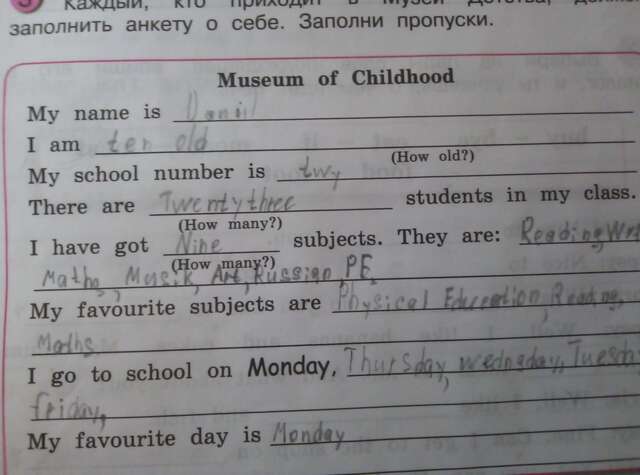 3 Каждый, кто приходит в Музей Детства, долже
заполнить анкету о себе. Заполни пропуски.
Museum of Childhood
My name is Daniil
I am ten old
(How old?)
My school number is twy
There are Twenty three students in my class.
(How many?)
I have got Nine subjects. They are: Reading,
(How many?)
Maths, Musik, Art, Russian PE
My favourite subjects are Physical Education, Reading,
Maths
I go to school on Monday, Thursday, wednesday, Tuesd
friday,
My favourite day is Monday